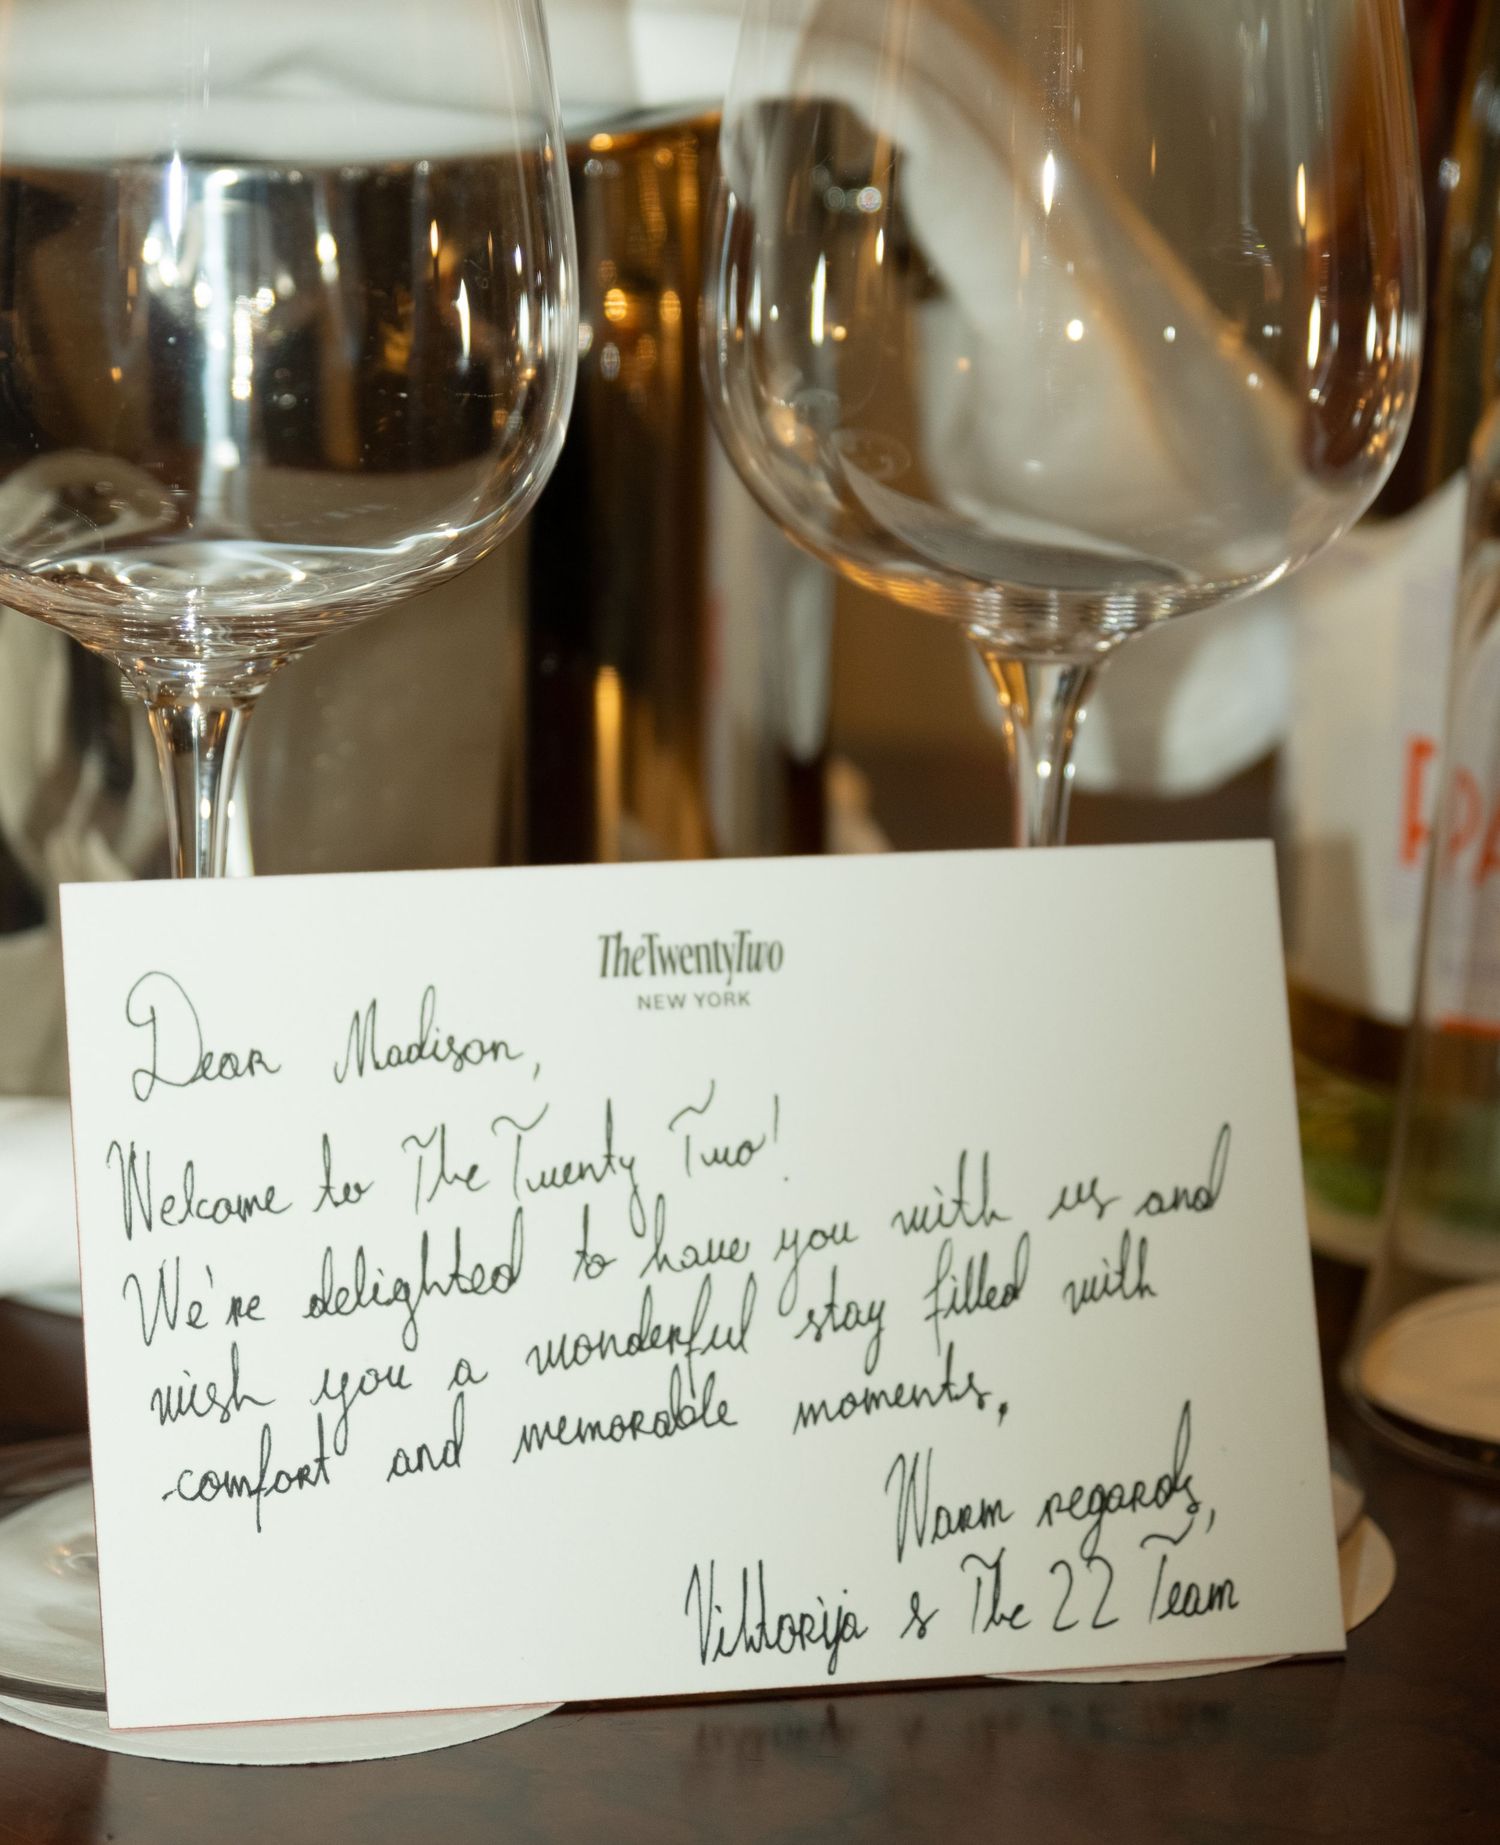 TheTwentyTwo
NEW YORK
Dear Madison,
Welcome to The Twenty Two!
We're delighted to have you with us and
wish you a wonderful stay filled with
comfort and memorable moments.
Warm regards,
Viktorija & The 22 Team